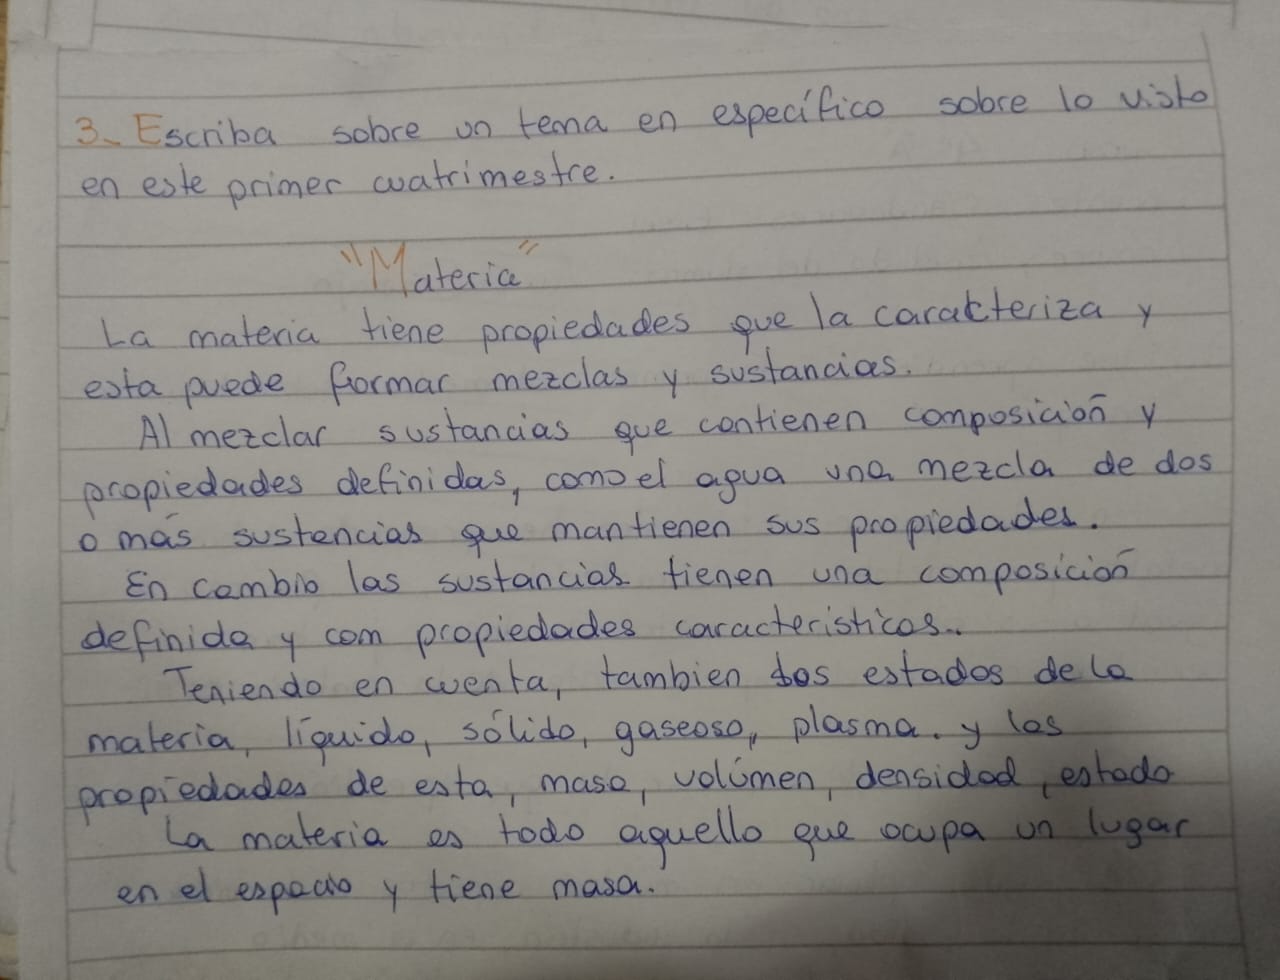 3. Escriba sobre un tema en específico sobre lo visto
en este primer cuatrimestre.
"Materia"
La materia tiene propiedades que la caracteriza y
esta puede formar mezclas y sustancias.
Al mezclar sustancias que contienen composición y
propiedades definidas, como el agua una mezcla de dos
o más sustancias que mantienen sus propiedades.
En cambio las sustancias tienen una composición
definida y com propiedades caracteristicas.
Teniendo en cuenta, tambien los estados de la
materia, líquido, sólido, gaseoso, plasma. y las
propiedades de esta, masa, volúmen, densidad, estado
La materia es todo aquello que ocupa un lugar
en el espacio y tiene masa.